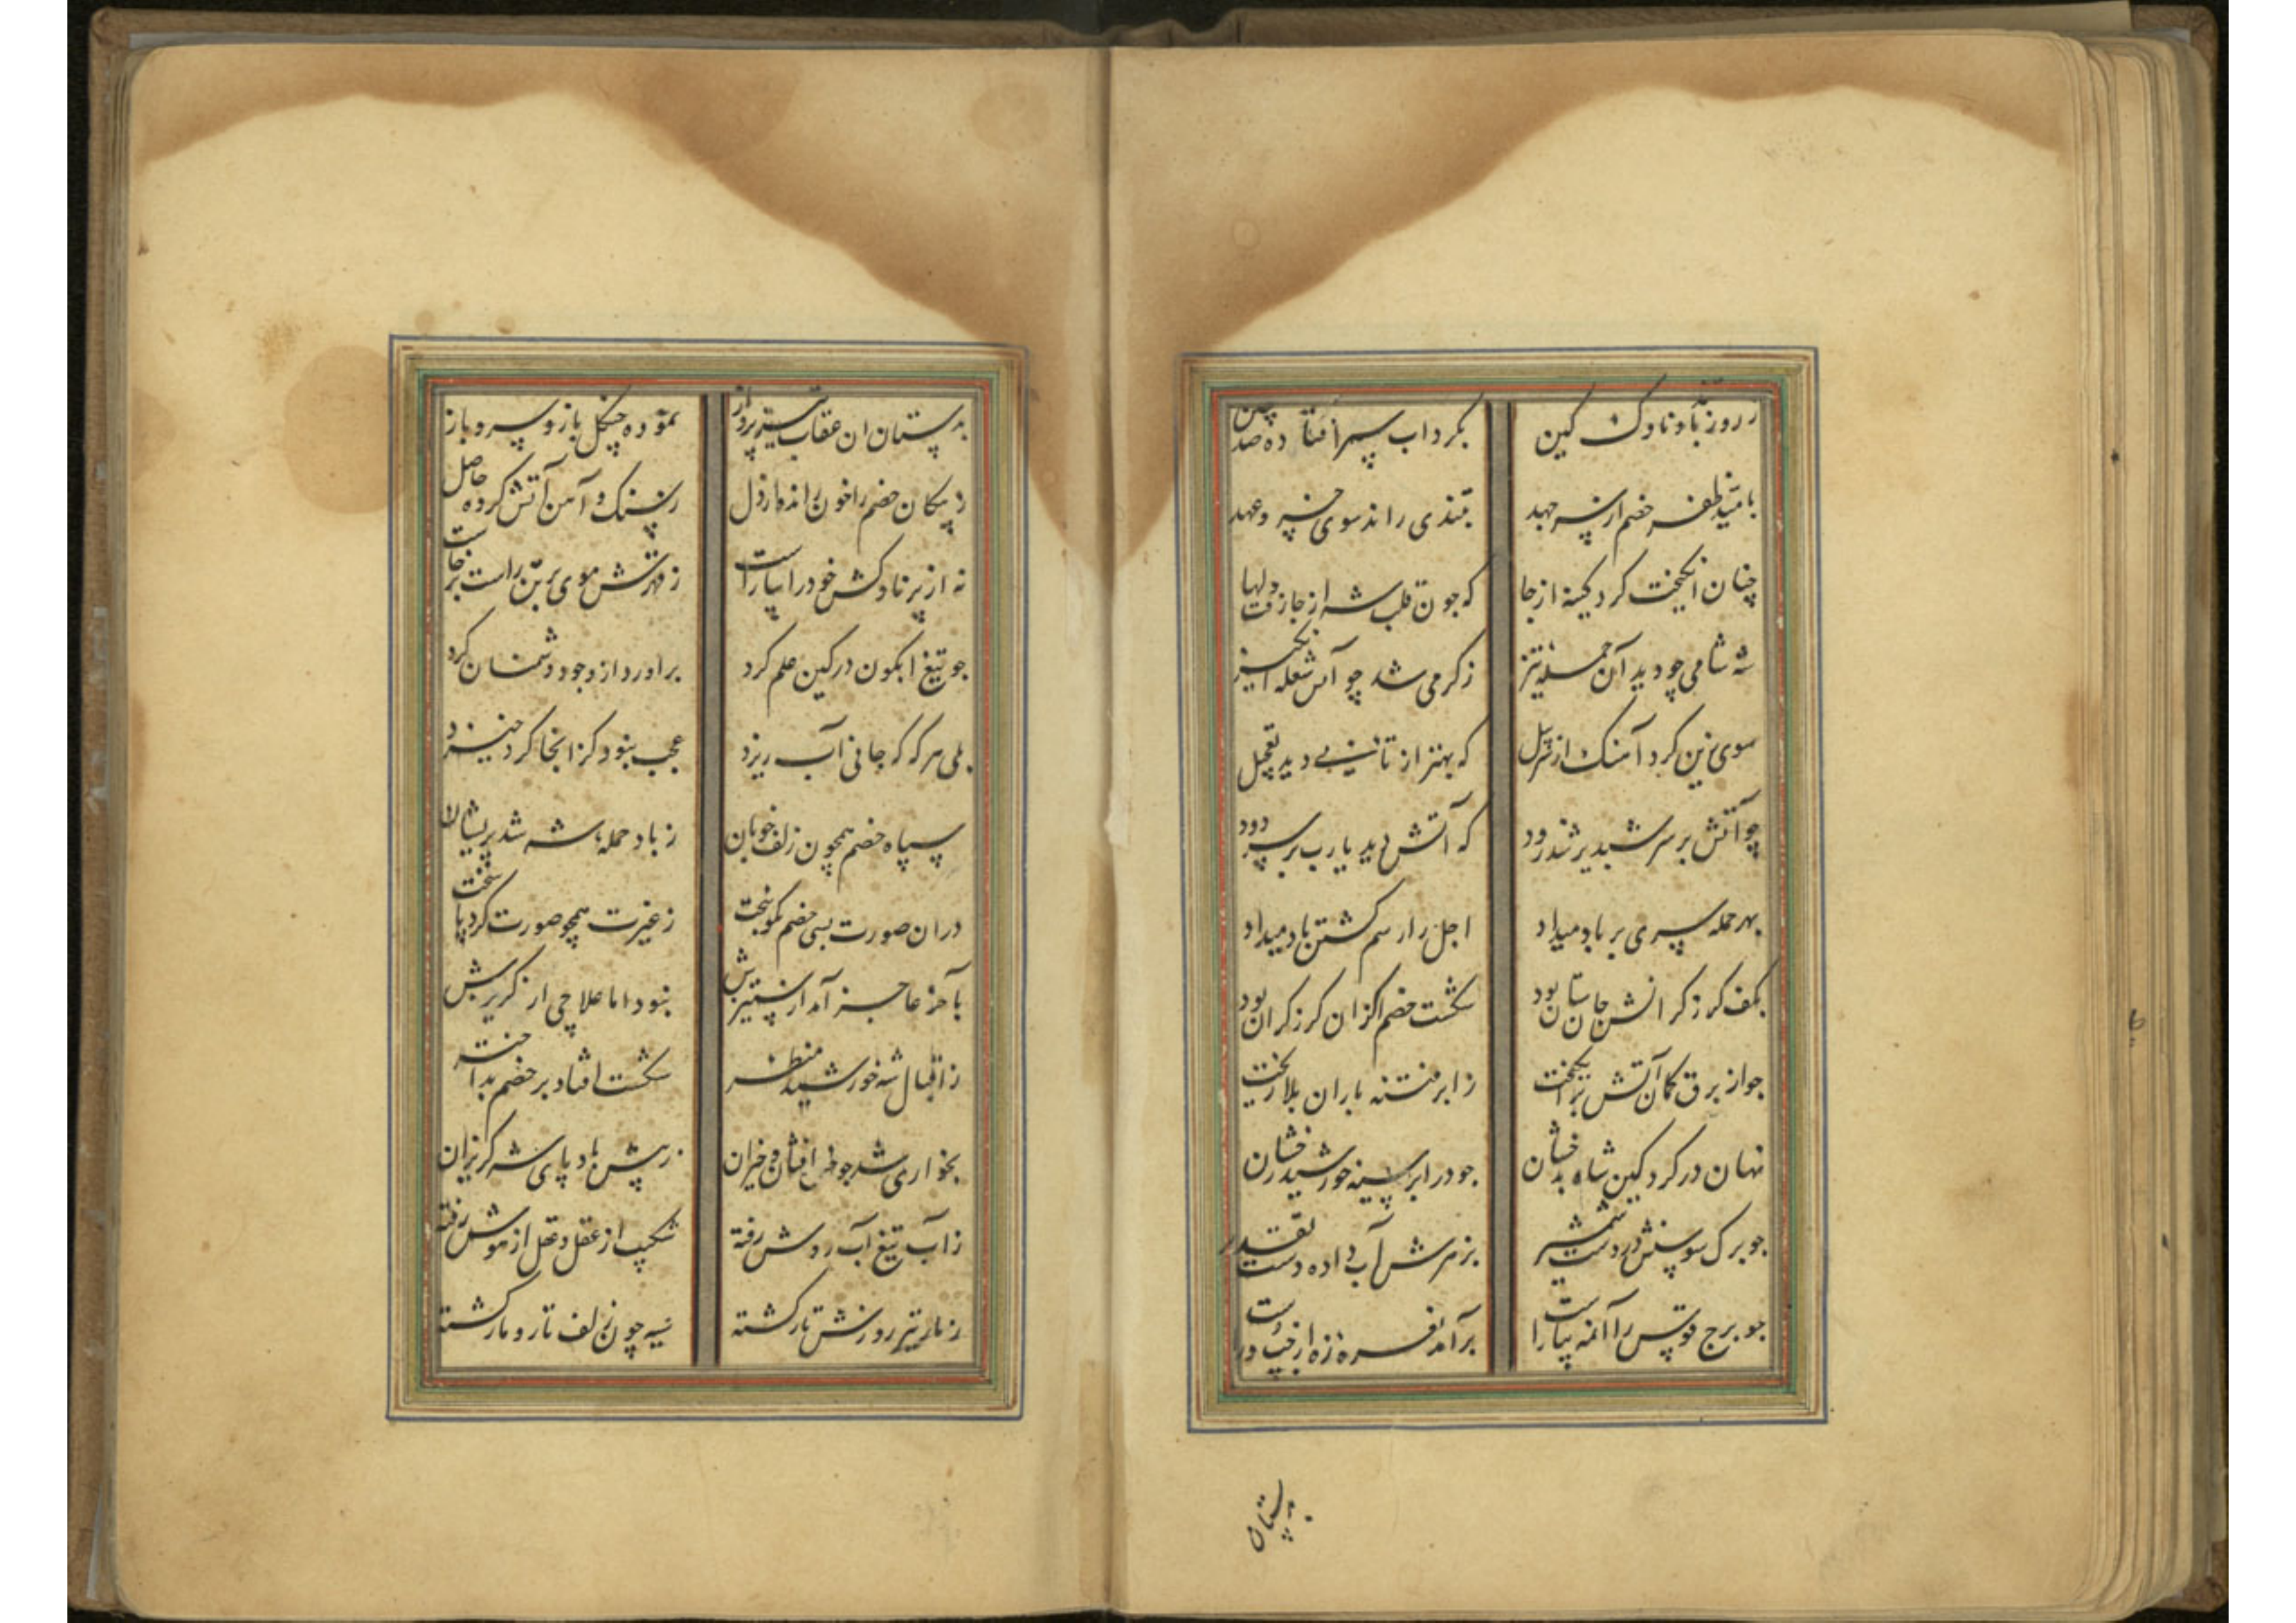 ز روز باد ناوک کین
بگرداب سپر افتاده صد چین
بامید ظفر خصم از پس جهد
بتندی راند سوی خسرو عهد
چنان انگیخت گرد کینه از جا
که چون قلب شه از جا رفت دلها
شه شامی چو دید آن حمله تیز
ز گرمی شد چو آتش شعله انگیز
سوی زین کرد آهنگ از
که بهتر از تانی دید تعجیل
چو آتش بر سر شبدیز شد زود
که آتش دید یارب بر سر دود
بهر حمله سری بر باد میداد
اجل را رسم کشتن یاد میداد
بکف گرز گرانش جان ستان بود
شکست خصم از آن گرز گران بود
جو از برق کمان آتش برانگیخت
ز ابر فتنه باران بلا ریخت
نهان در گرد کین شاه بدخشان
جو در ابر سیه خورشید رخشان
جو برگ سوسنش در دست شمشیر
بزهرش آب داده دست تقدیر
جو برج قوس را آنمه بیاراست
برآمد نعره زه از چپ و راست
بدستان
بدستان ان عقاب تیز پرواز
نموده چنگل باز و سر و باز
ز پیکان خصم را خون رانده از دل
ز سنگ و آهن آتش کرده حاصل
نه از پر ناوکش خود را بیاراست
ز قهرش موی بر تن راست برخاست
جو تیغ ابگون در کین علم کرد
براورد از وجود دشمنان گرد
بلی هر که که جانی آب ریزد
عجب نبود کز انجا گرد خیزد
سپاه خصم همچون زلف خوبان
ز باد حمله شه شد پریشان
دران صورت بسی خصم نکوبخت
ز غیرت همچو صورت کرد پا سخت
بآخر عاجز آمد از ستیزش
نبود اما علاجی از گریزش
ز اقبال شه خورشید منظر
شکست افتاد بر خصم بداختر
بخواری شد جو افتان و خیزان
ز پیش باد پای شه گریزان
ز آب تیغ آب روش رفته
شکیب از عقل و عقل از هوش رفته
ز مار تیر روزش تار گشته
سیه چون زلف تار و مار گشته